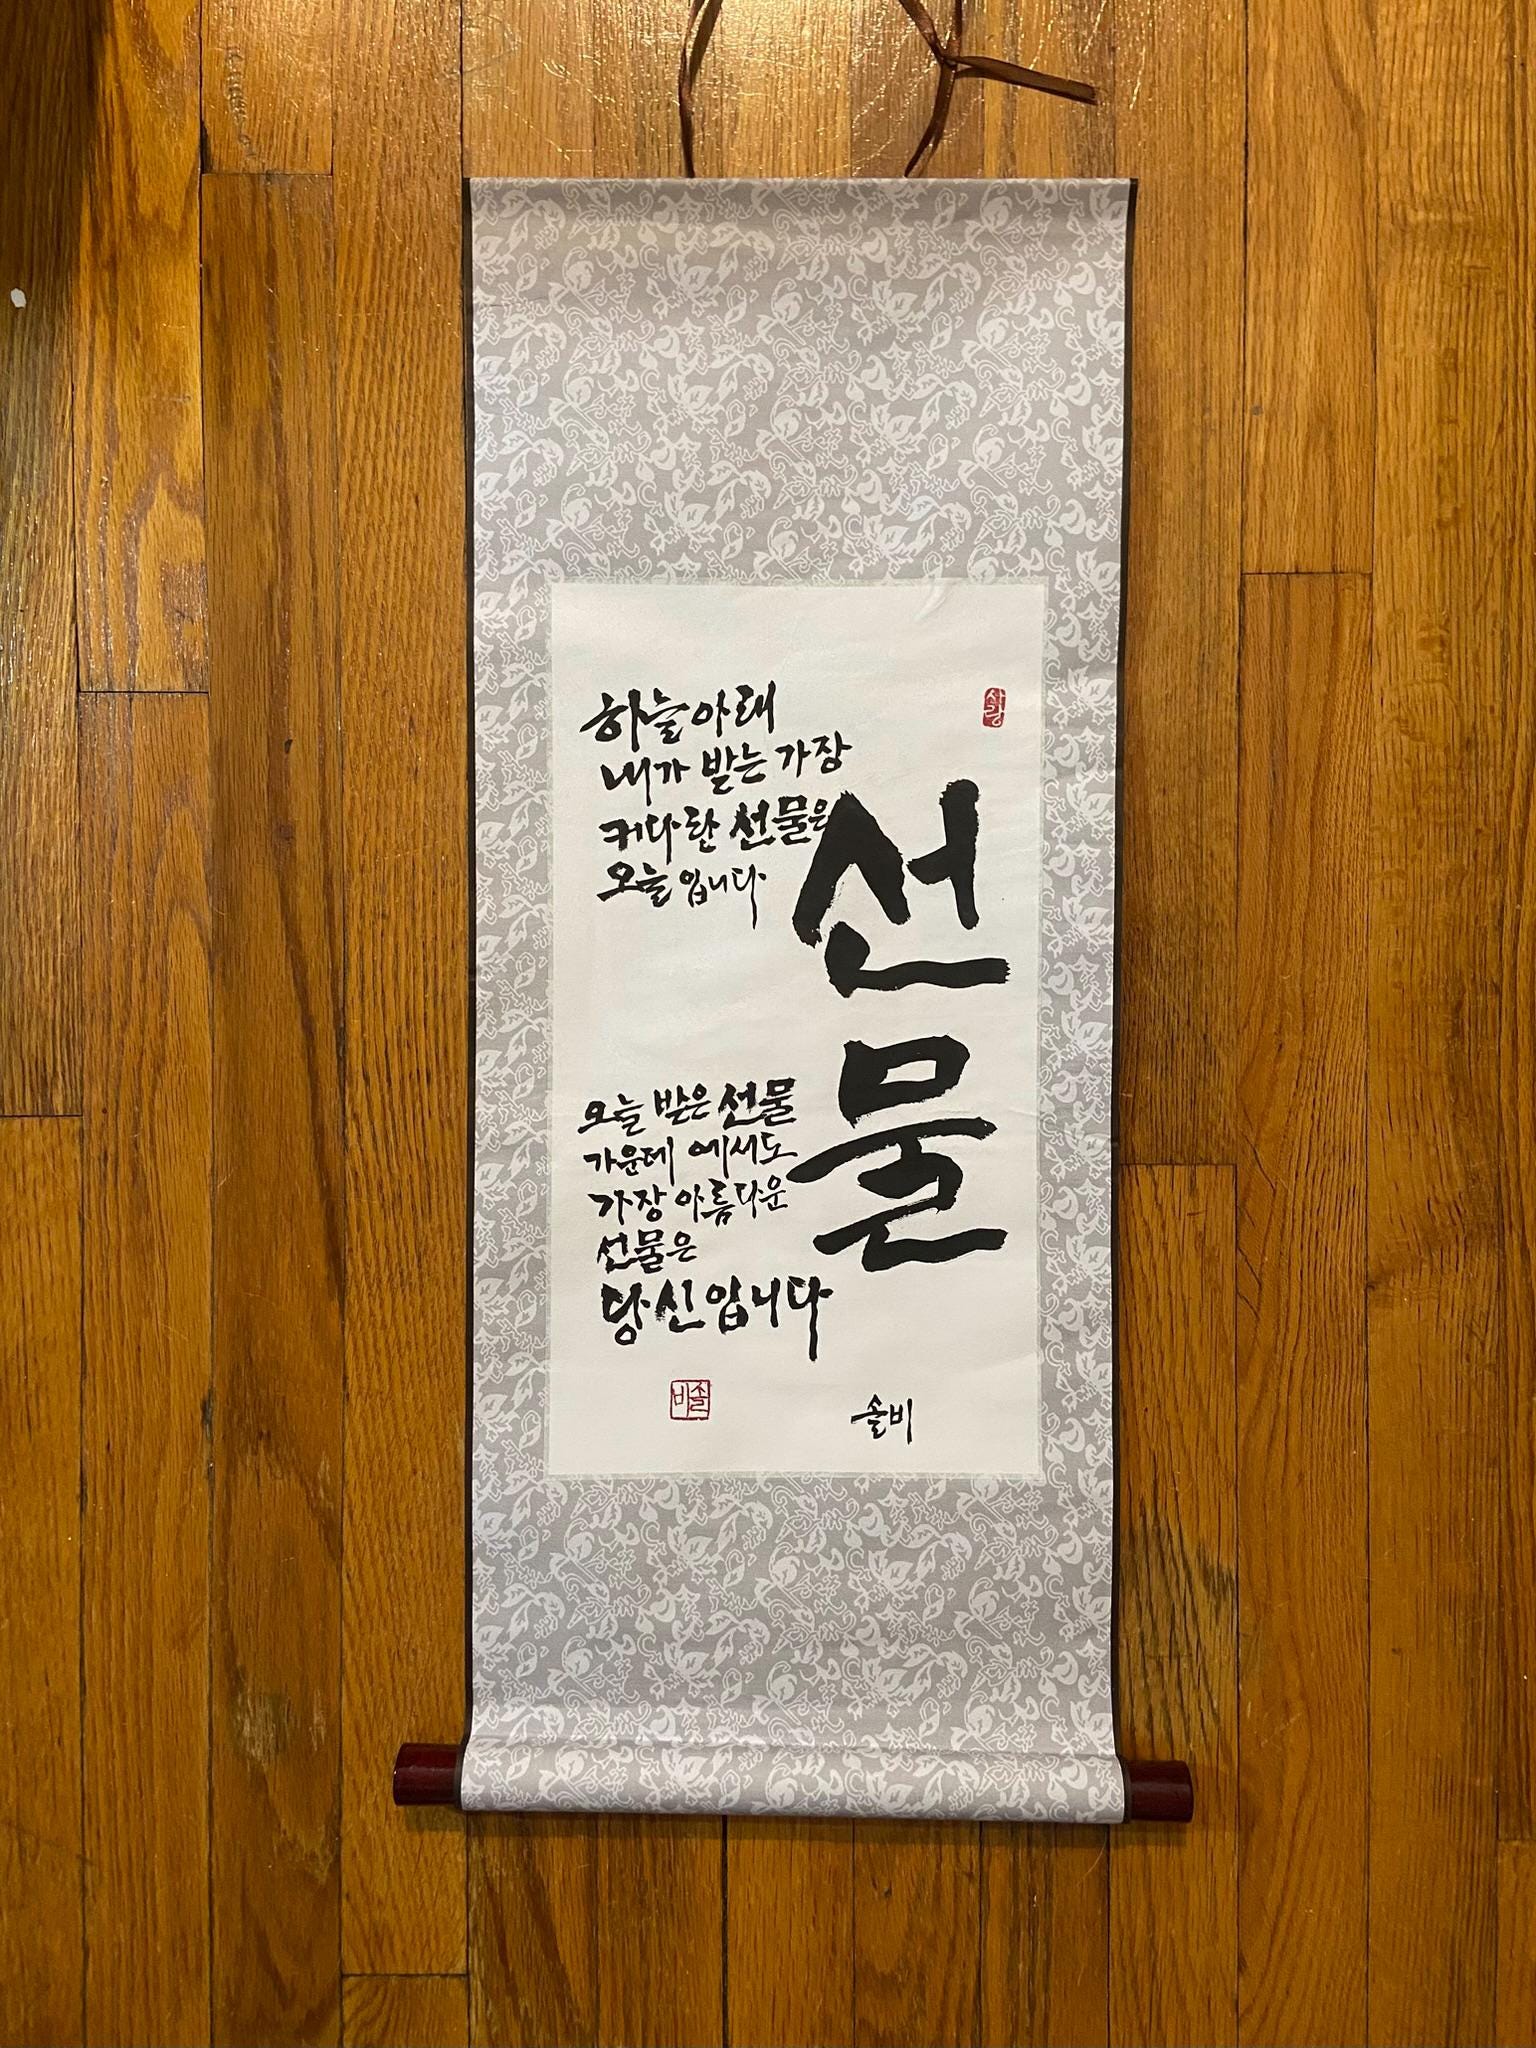 사랑
하늘 아래
내가 받는 가장
커다란 선물은
오늘입니다
선물
오늘 받은 선물
가운데 에서도
가장 아름다운
선물은
당신입니다
솔비
솔비